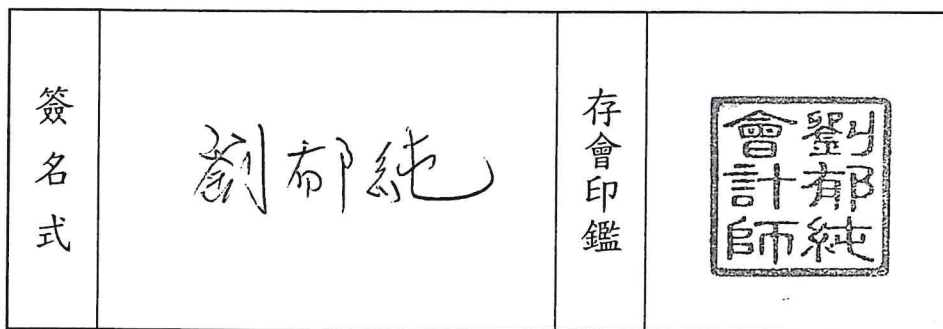 簽名式
劉郁純
存會印鑑
劉郁純
會計師